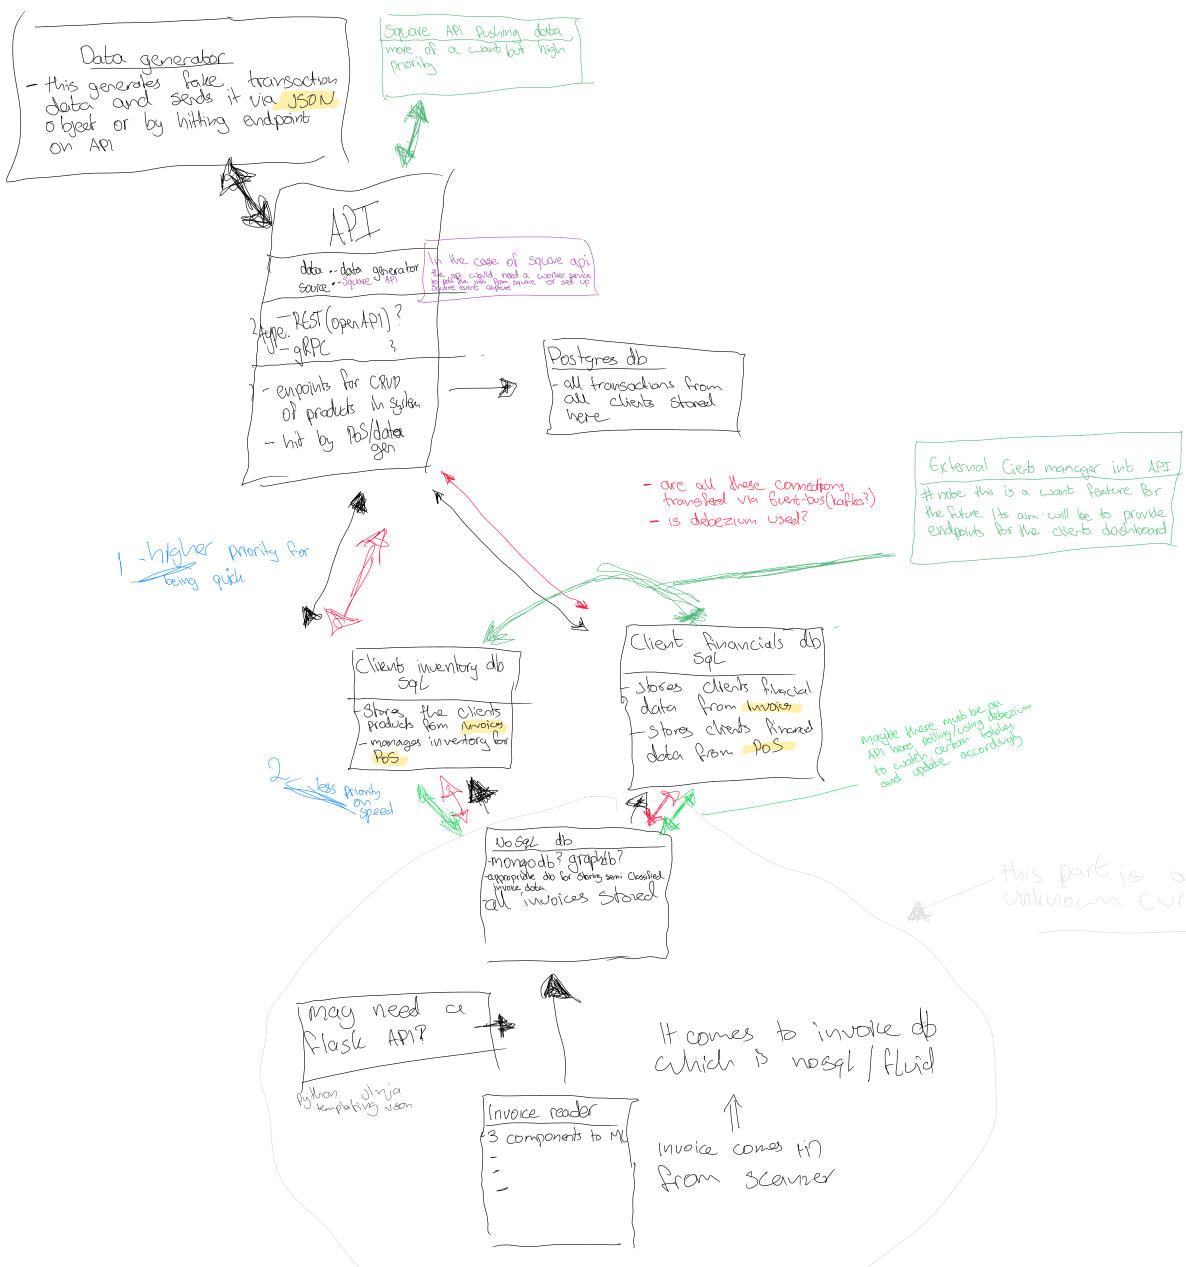 Data generator
- this generates fake transaction
data and sends it via JSON
object or by hitting endpoint
on API
Square API pushing data
more of a want but high
priority
API
data - data generator
source - Square API
In the case of square api
the api would need a worker service
to poll the info from square or set up
square event capture
? type. - REST (openAPI) ?
- gRPC ?
- enpoints for CRUD
of products in system
- hit by PoS/data
gen
Postgres db
- all transactions from
all clients stored
here
External Clients manager int API
# note this is a want feature for
the future Its aim will be to provide
endpoints for the clients dashboard
- are all these connections
transfered via Event-bus (kafka?)
- is debezium used?
1 - higher priority for
being quick
Clients inventory db
SQL
- Stores the clients
products from invoices
- manages inventory for
PoS
Client financials db
SQL
- stores clients finacial
data from invoices
- stores clients financal
data from PoS
maybe there must be an
API here polling/using debezium
to watch certain tables
and update accordingly
2 - less priority
on
speed
NoSql db
- mongodb? graphdb?
- appropriate db for storing semi classified
invoice data
- all invoices stored
this part is a
unknown cur
may need a
flask API?
python Jinja
templating
It comes to invoice db
which is nosql / fluid
Invoice reader
- 3 components to ML
-
-
-
Invoice comes in
from scanner